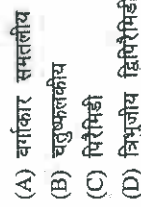 (A) वर्गाकार समतलीय
(B) चतुष्फलकीय
(C) पिरैमिडी
(D) त्रिभुजीय द्विपिरैमिडी